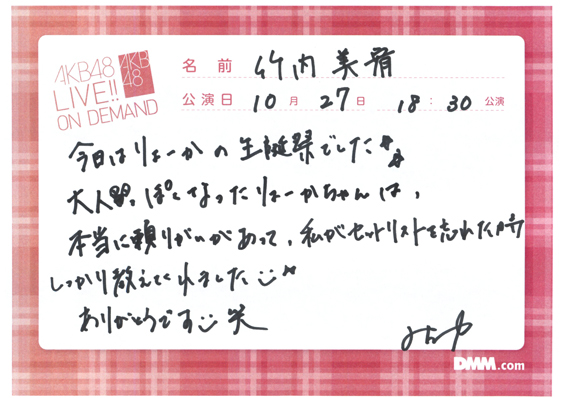 AKB48
LIVE!!
ON DEMAND
AKB
48
名前 竹内美宥
公演日 10月27日 18:30公演
今日はりょーかの生誕祭でした
大人っぽくなったりょーかちゃんは、
本当に頼りがいがあって、私がセットリストを忘れた時
しっかり教えてくれました
ありがとうです 笑
DMM.com